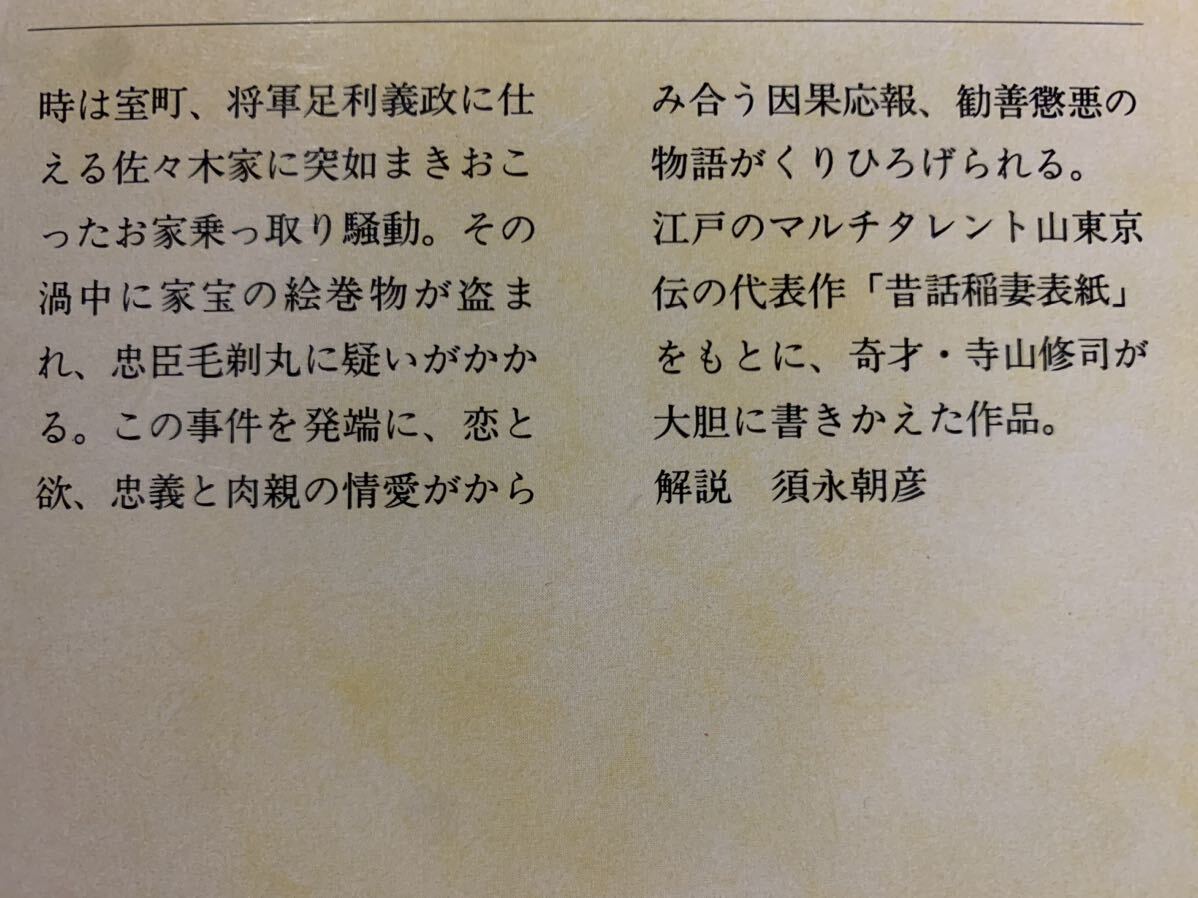 時は室町、将軍足利義政に仕
える佐々木家に突如まきおこ
ったお家乗っ取り騒動。その
渦中に家宝の絵巻物が盗ま
れ、忠臣毛剃丸に疑いがかか
る。この事件を発端に、恋と
欲、忠義と肉親の情愛がから
み合う因果応報、勧善懲悪の
物語がくりひろげられる。
江戸のマルチタレント山東京
伝の代表作「昔話稲妻表紙」
をもとに、奇才・寺山修司が
大胆に書きかえた作品。
解説　須永朝彦